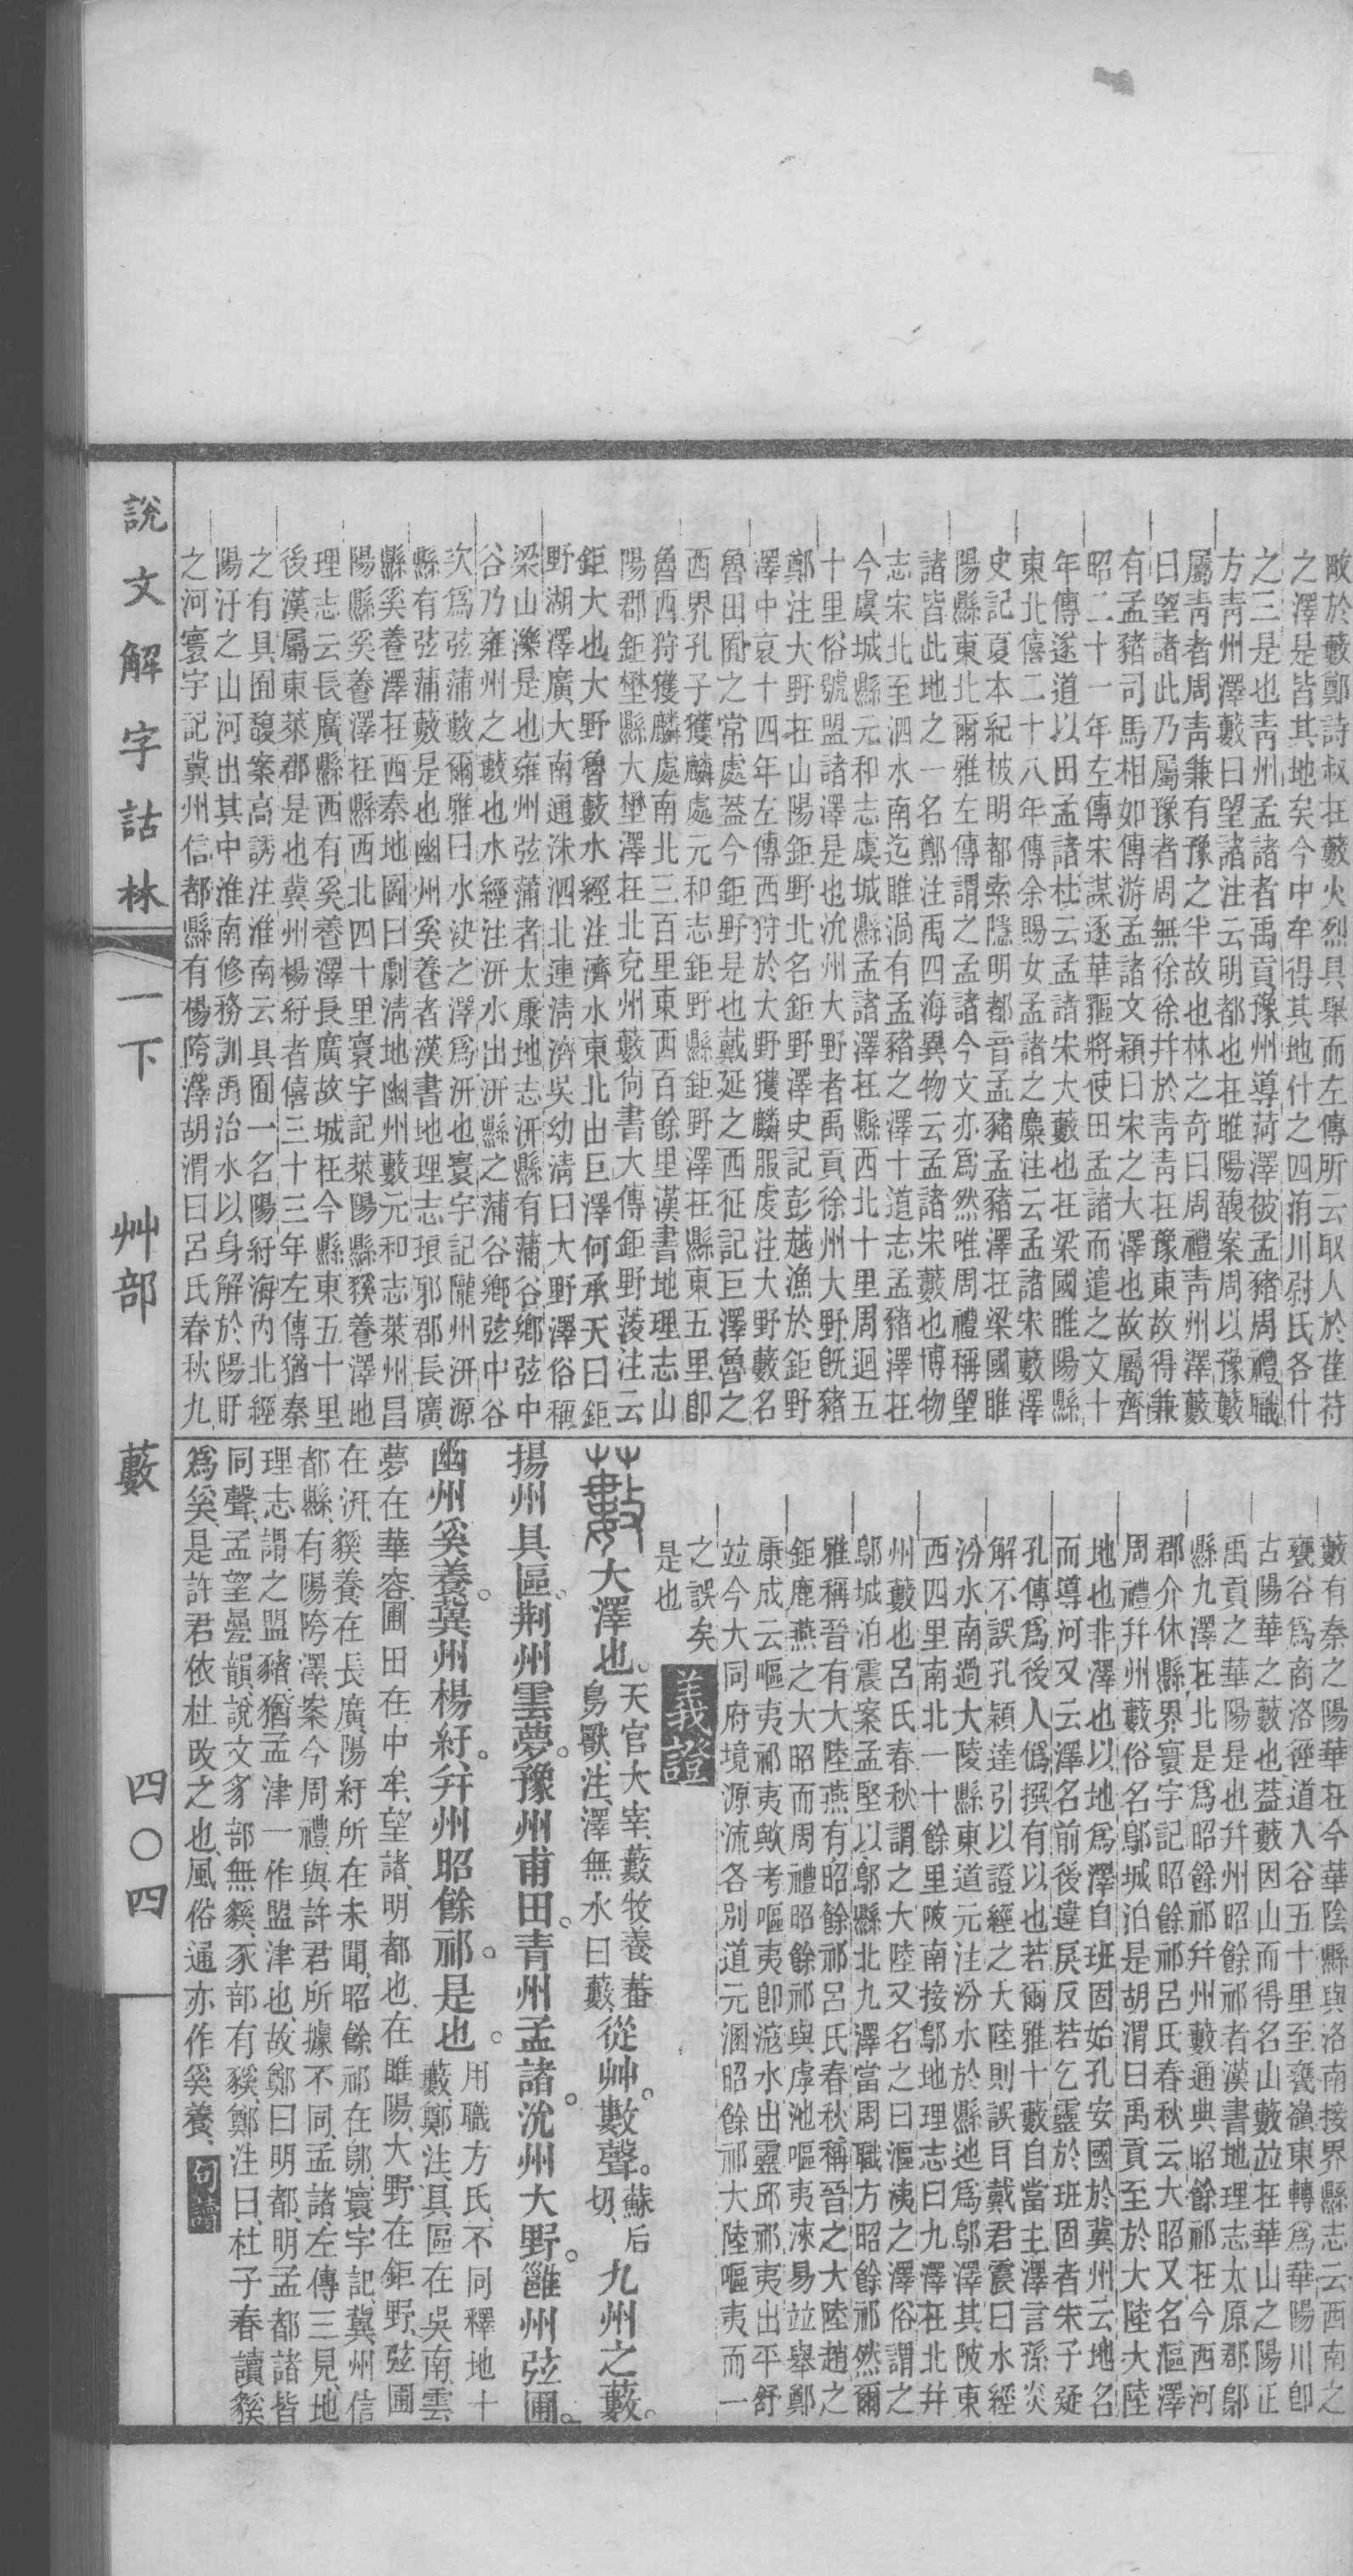 畋於藪鄭詩叔在藪火烈具舉而左傳所云取人於萑苻
之澤是皆其地矣今中牟得其地什之四洧川尉氏各什
之三是也靑州孟諸者禹貢豫州導菏澤被孟豬周禮職
方靑州澤藪曰望諸注云明都也在睢陽馥案周以豫藪
屬靑者周靑兼有豫之半故也林之奇曰周禮靑州澤藪
曰望諸此乃屬豫者周無徐徐幷於靑靑在豫東故得兼
有孟豬司馬相如傳游孟諸文穎曰宋之大澤也故屬齊
昭二十一年左傳宋謀逐華貙將使田孟諸而遣之文十
年傳遂道以田孟諸杜云孟諸宋大藪也在梁國睢陽縣
東北僖二十八年傳余賜女孟諸之麋注云孟諸宋藪澤
史記夏本紀被明都索隱明都音孟豬孟豬澤在梁國睢
陽縣東北爾雅左傳謂之孟諸今文亦爲然唯周禮稱望
諸皆此地之一名鄭注禹四海異物云孟諸宋藪也博物
志宋北至泗水南迄睢渦有孟豬之澤十道志孟豬澤在
今虞城縣元和志虞城縣孟諸澤在縣西北十里周迴五
十里俗號盟諸澤是也沇州大野者禹貢徐州大野旣豬
鄭注大野在山陽鉅野北名鉅野澤史記彭越漁於鉅野
澤中哀十四年左傳西狩於大野獲麟服虔注大野藪名
魯田囿之常處葢今鉅野是也戴延之西征記巨澤魯之
西界孔子獲麟處元和志鉅野縣鉅野澤在縣東五里卽
魯西狩獲麟處南北三百里東西百餘里漢書地理志山
陽郡鉅壄縣大壄澤在北兗州藪尙書大傳鉅野菠注云
鉅大也大野魯藪水經注濟水東北出巨澤何承天曰鉅
野湖澤廣大南通洙泗北連淸濟吳幼淸曰大野澤俗稱
梁山濼是也雍州弦蒲者太康地志汧縣有蒲谷鄉弦中
谷乃雍州之藪也水經注汧水出汧縣之蒲谷鄉弦中谷
次爲弦蒲藪爾雅曰水決之澤爲汧也寰宇記隴州汧源
縣有弦蒲藪是也幽州奚養者漢書地理志琅邪郡長廣
縣奚養澤在西秦地圖曰劇淸地幽州藪元和志萊州昌
陽縣奚養澤在縣西北四十里寰宇記萊陽縣豯養澤地
理志云長廣縣西有奚養澤長廣故城在今縣東五十里
後漢屬東萊郡是也冀州楊紆者僖三十三年左傳猶秦
之有具囿馥案高誘注淮南云具囿一名陽紆海內北經
陽汙之山河出其中淮南修務訓禹治水以身解於陽盱
之河寰宇記冀州信都縣有楊陓澤胡渭曰呂氏春秋九
藪有秦之陽華在今華陰縣與洛南接界縣志云西南之
甕谷爲商洛徑道入谷五十里至甕嶺東轉爲華陽川卽
古陽華之藪也葢藪因山而得名山藪竝在華山之陽正
禹貢之華陽是也幷州昭餘祁者漢書地理志太原郡鄔
縣九澤在北是爲昭餘祁幷州藪通典昭餘祁在今西河
郡介休縣界寰宇記昭餘祁呂氏春秋云大昭又名漚澤
周禮幷州藪俗名鄔城泊是胡渭曰禹貢至於大陸大陸
地也非澤也以地爲澤自班固始孔安國於冀州云地名
而導河又云澤名前後違戾反若乞靈於班固者朱子疑
孔傳爲後人僞撰有以也若爾雅十藪自當主澤言孫炎
解不誤孔穎達引以證經之大陸則誤目戴君震曰水經
汾水南過大陵縣東道元注汾水於縣迆爲鄔澤其陂東
西四里南北一十餘里陂南接鄔地理志曰九澤在北幷
州藪也呂氏春秋謂之大陸又名之曰漚洟之澤俗謂之
鄔城泊震案孟堅以鄔縣北九澤當周職方昭餘祁然爾
雅稱晉有大陸燕有昭餘祁呂氏春秋稱晉之大陸趙之
鉅鹿燕之大昭而周禮昭餘祁與虖池嘔夷淶易竝舉鄭
康成云嘔夷祁夷歟考嘔夷卽滱水出靈邱祁夷出平舒
竝今大同府境源流各別道元溷昭餘祁大陸嘔夷而一
之誤矣義證
是也
藪大澤也。天官大宰、藪牧養蕃鳥獸、注、澤無水曰藪、從艸。數聲。蘇后切、九州之藪。
揚州具區。荆州雲夢。豫州甫田。青州孟諸。沇州大野。雝州弦圃。
幽州奚養。冀州楊紆。幷州昭餘祁。是也。用職方氏、不同釋地十藪、鄭注、具區在吳南、雲
夢在華容、圃田在中牟、望諸、明都也、在睢陽、大野在鉅野、弦圃
在汧、豯養在長廣、陽紆所在未聞、昭餘祁在鄔、寰宇記、冀州信
都縣、有陽陓澤、案今周禮、與許君所據不同、孟諸、左傳三見、地
理志、謂之盟豬、猶孟津一作盟津也、故鄭曰明都、明孟都諸皆
同聲、孟望疊韻、說文豸部無貕、豕部有豯、鄭注曰、杜子春讀豯
爲奚、是許君依杜改之也、風俗通亦作奚養、句讀
說文解字詁林 一下 艸部 藪 四〇四